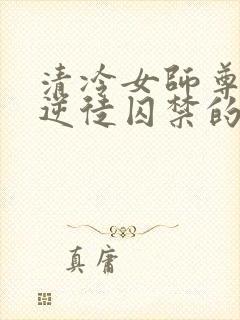 清冷女師尊
逆徒囚禁的
真庸